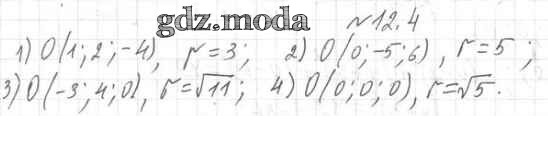 gdz.moda
№12.4
1) O(1; 2; -4), r = 3; 2) O(0; -5; 6), r = 5;
3) O(-3; 4; 0), r = √11; 4) O(0; 0; 0), r = √5.